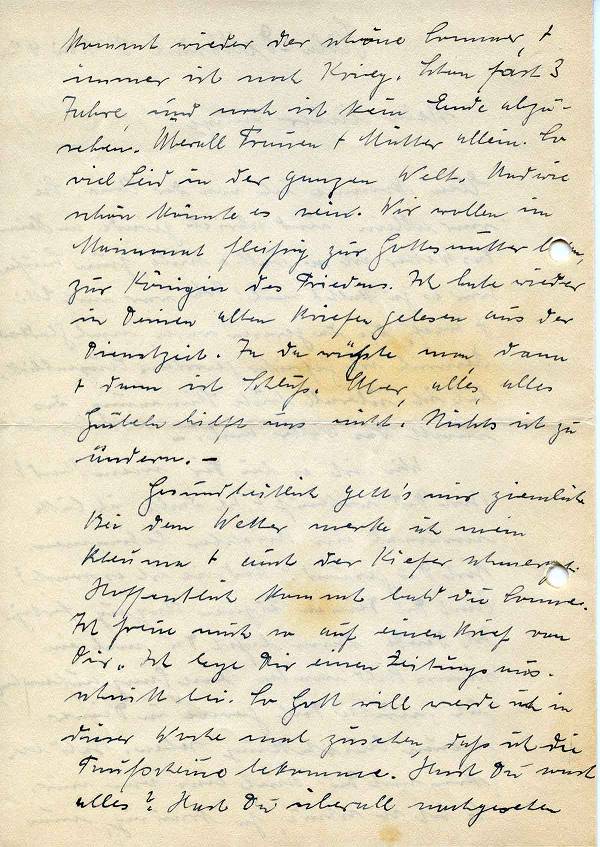 kommt wieder der schöne Sommer, +
immer ist noch Krieg. Schon fast 3
Jahre, und noch ist kein Ende abzu-
sehen. Überall Frauen + Mütter allein. So
viel Leid in der ganzen Welt. Und wie
schön könnte es sein. Wir wollen im
Maimonat fleißig zur Gottesmutter beten,
zur Königin des Friedens. Ich habe wieder
in Deinen alten Briefen gelesen aus der
Dienstzeit. Ja da wüßte man, dann
+ dann ist Schluß. Aber, alles, alles
Grübeln hilft uns nicht. Nichts ist zu
ändern. –
Gesundheitlich geht's mir ziemlich
Bei dem Wetter merke ich mein
Rheuma + auch der Kiefer schmerzt.
Hoffentlich kommt bald die Sonne.
Ich freue mich so auf einen Brief von
Dir. Ich lege Dir einen Zeitungsaus-
schnitt bei. So Gott will werde ich in
dieser Woche mal zusehen, daß ich die
Taufscheine bekomme. Hast Du noch
alles? Hast Du überall nachgesehen